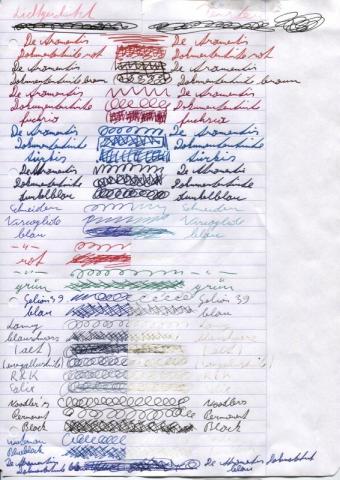 Lichtgeschützt
De Atramentis De Atramentis
Dokumententinte rot Dokumententinte rot
De Atramentis De Atramentis
Dokumententinte braun Dokumententinte braun
De Atramentis De Atramentis
Dokumententinte Dokumententinte
fuchsia fuchsia
De Atramentis De Atramentis
Dokumententinte Dokumententinte
türkis türkis
De Atramentis De Atramentis
Dokumententinte Dokumententinte
dunkelblau dunkelblau
Schneider Schneider
Varioglide Varioglide
blau blau
-"- -"-
rot
-"- -"-
grün grün
Geltin 39 Geltin 39
blau blau
Lamy Lamy
blauschwarz blauschwarz
(alt) (alt)
R&K R&K
Salix Salix
Noodler's Noodlers
Permanent Permanent
Black Black
Waterman
Blueblack
De Atramentis De Atramentis Dokumentenblau
Dokumentenblau blau